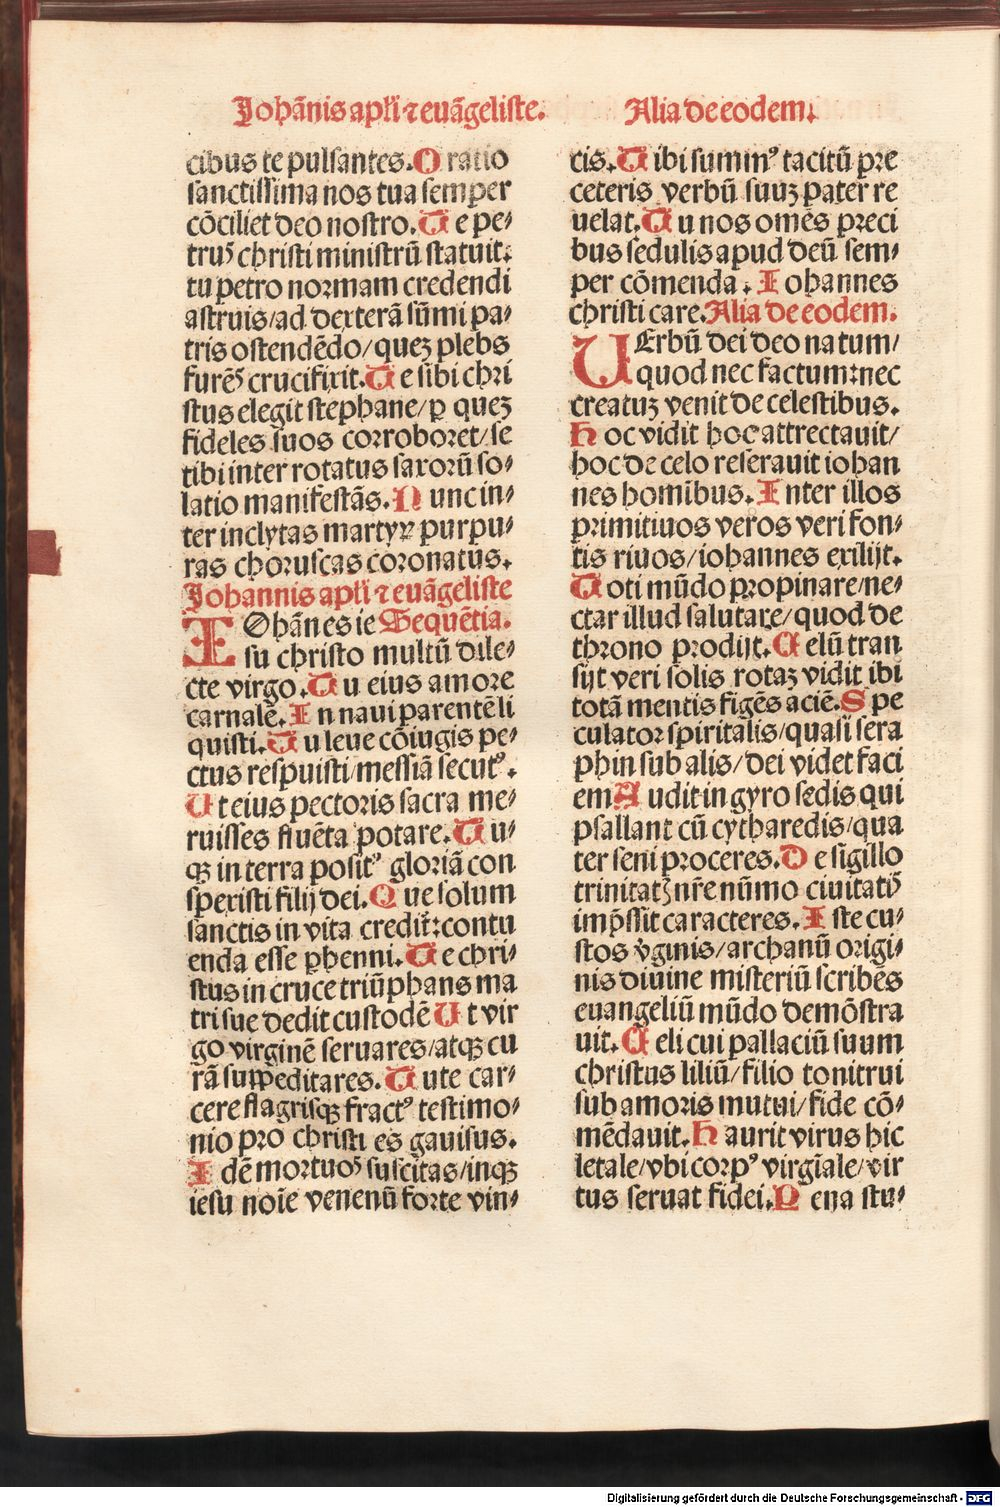 Johãnis apl'i ⁊ euãgeliste. Alia de eodem.
cibus te pulsantes. Oratio
sanctissima nos tua semper
cõciliet deo nostro. Te pe⸗
trus christi ministrũ statuit:
tu petro normam credendi
astruis/ad dexterã sũmi pa⸗
tris ostendẽdo/quez plebs
furẽs crucifixit. Te sibi chri
stus elegit stephane/ꝑ quez
fideles suos corroboret/se
tibi inter rotatus saxorũ so⸗
latio manifestãs. Nunc in⸗
ter inclytas martyꝝ purpu⸗
ras choruscas coronatus.
Johannis apl'i ⁊ euãgeliste
IOhãnes ie Sequẽtia.
su christo multũ dile⸗
cte virgo. Tu eius amore
carnalẽ. In naui parentẽ li
quisti. Tu leue cõiugis pe⸗
ctus respuisti/messiã secutꝰ.
Ut eius pectoris sacra me⸗
ruisses fluẽta potare. Tu⸗
qꝫ in terra positꝰ gloriã con
spexisti filij dei. Que solum
sanctis in vita credit̃: contu
enda esse ꝑhenni. Te chri⸗
stus in cruce triũphans ma
tri sue dedit custodẽ Ut vir
go virginẽ seruares/atqꝫ cu
rã suppeditares. Tute car⸗
cere flagrisqꝫ fractꝰ testimo⸗
nio pro christi es gauisus.
Idẽ mortuos suscitas/inqꝫ
iesu noĩe venenũ forte vin⸗
cis. Tibi summꝰ tacitũ pre
ceteris verbũ suuz pater re
uelat. Tu nos omẽs preci
bus sedulis apud deũ sem⸗
per cõmenda. Iohannes
christi care. Alia de eodem.
UErbũ dei deo natum/
quod nec factum: nec
creatuz venit de celestibus.
Hoc vidit hoc attrectauit/
hoc de celo reserauit iohan
nes homĩbus. Inter illos
primitiuos veros veri fon⸗
tis riuos/iohannes exilijt.
Toti mũdo propinare/ne⸗
ctar illud salutare/quod de
throno prodijt. Celũ tran
sijt veri solis rotaz vidit ibi
totã mentis figẽs aciẽ. Spe
culator spiritalis/quasi sera
phin sub alis/dei videt faci
em Audit in gyro sedis qui
psallant cũ cytharedis/qua
ter seni proceres. De sigillo
trinitatꝫ nr̃e nũmo ciuitatis
imp̃ssit caracteres. Iste cu⸗
stos v̓ginis/archanũ origi⸗
nis diuine misteriũ scribẽs
euangeliũ mũdo demõstra
uit. Celi cui pallaciũ suum
christus liliũ/filio tonitrui
sub amoris mutui/fide cõ⸗
mẽdauit. Haurit virus hic
letale/vbi corpꝰ virgĩale/vir
tus seruat fidei. Pena stu⸗
Digitalisierung gefördert durch die Deutsche Forschungsgemeinschaft - DFG